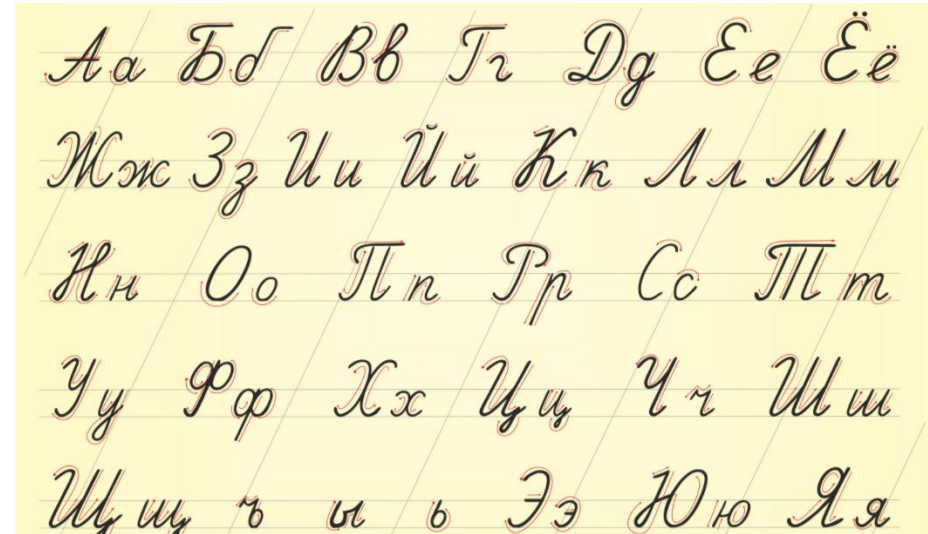 Аа Бб Вв Гг Дд Ее Ёё
Жж Зз Ии Йй Кк Лл Мм
Нн Оо Пп Рр Сс Тт
Уу Фф Хх Цц Чч Шш
Щщ ъ ы ь Ээ Юю Яя